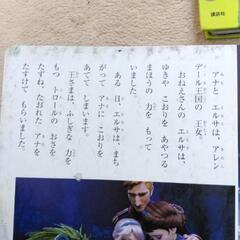 講談社
アナと エルサは、アレン
デール王国の 王女。
おねえさんの エルサは、
ゆきや こおりを あやつる
まほうの 力を もって
いました。
ある 日、エルサは、まち
がって アナに こおりを
あてて しまいます。
王さまは、ふしぎな 力を
もつ トロールの おさを
たずね、たおれた アナを
たすけて もらいました。